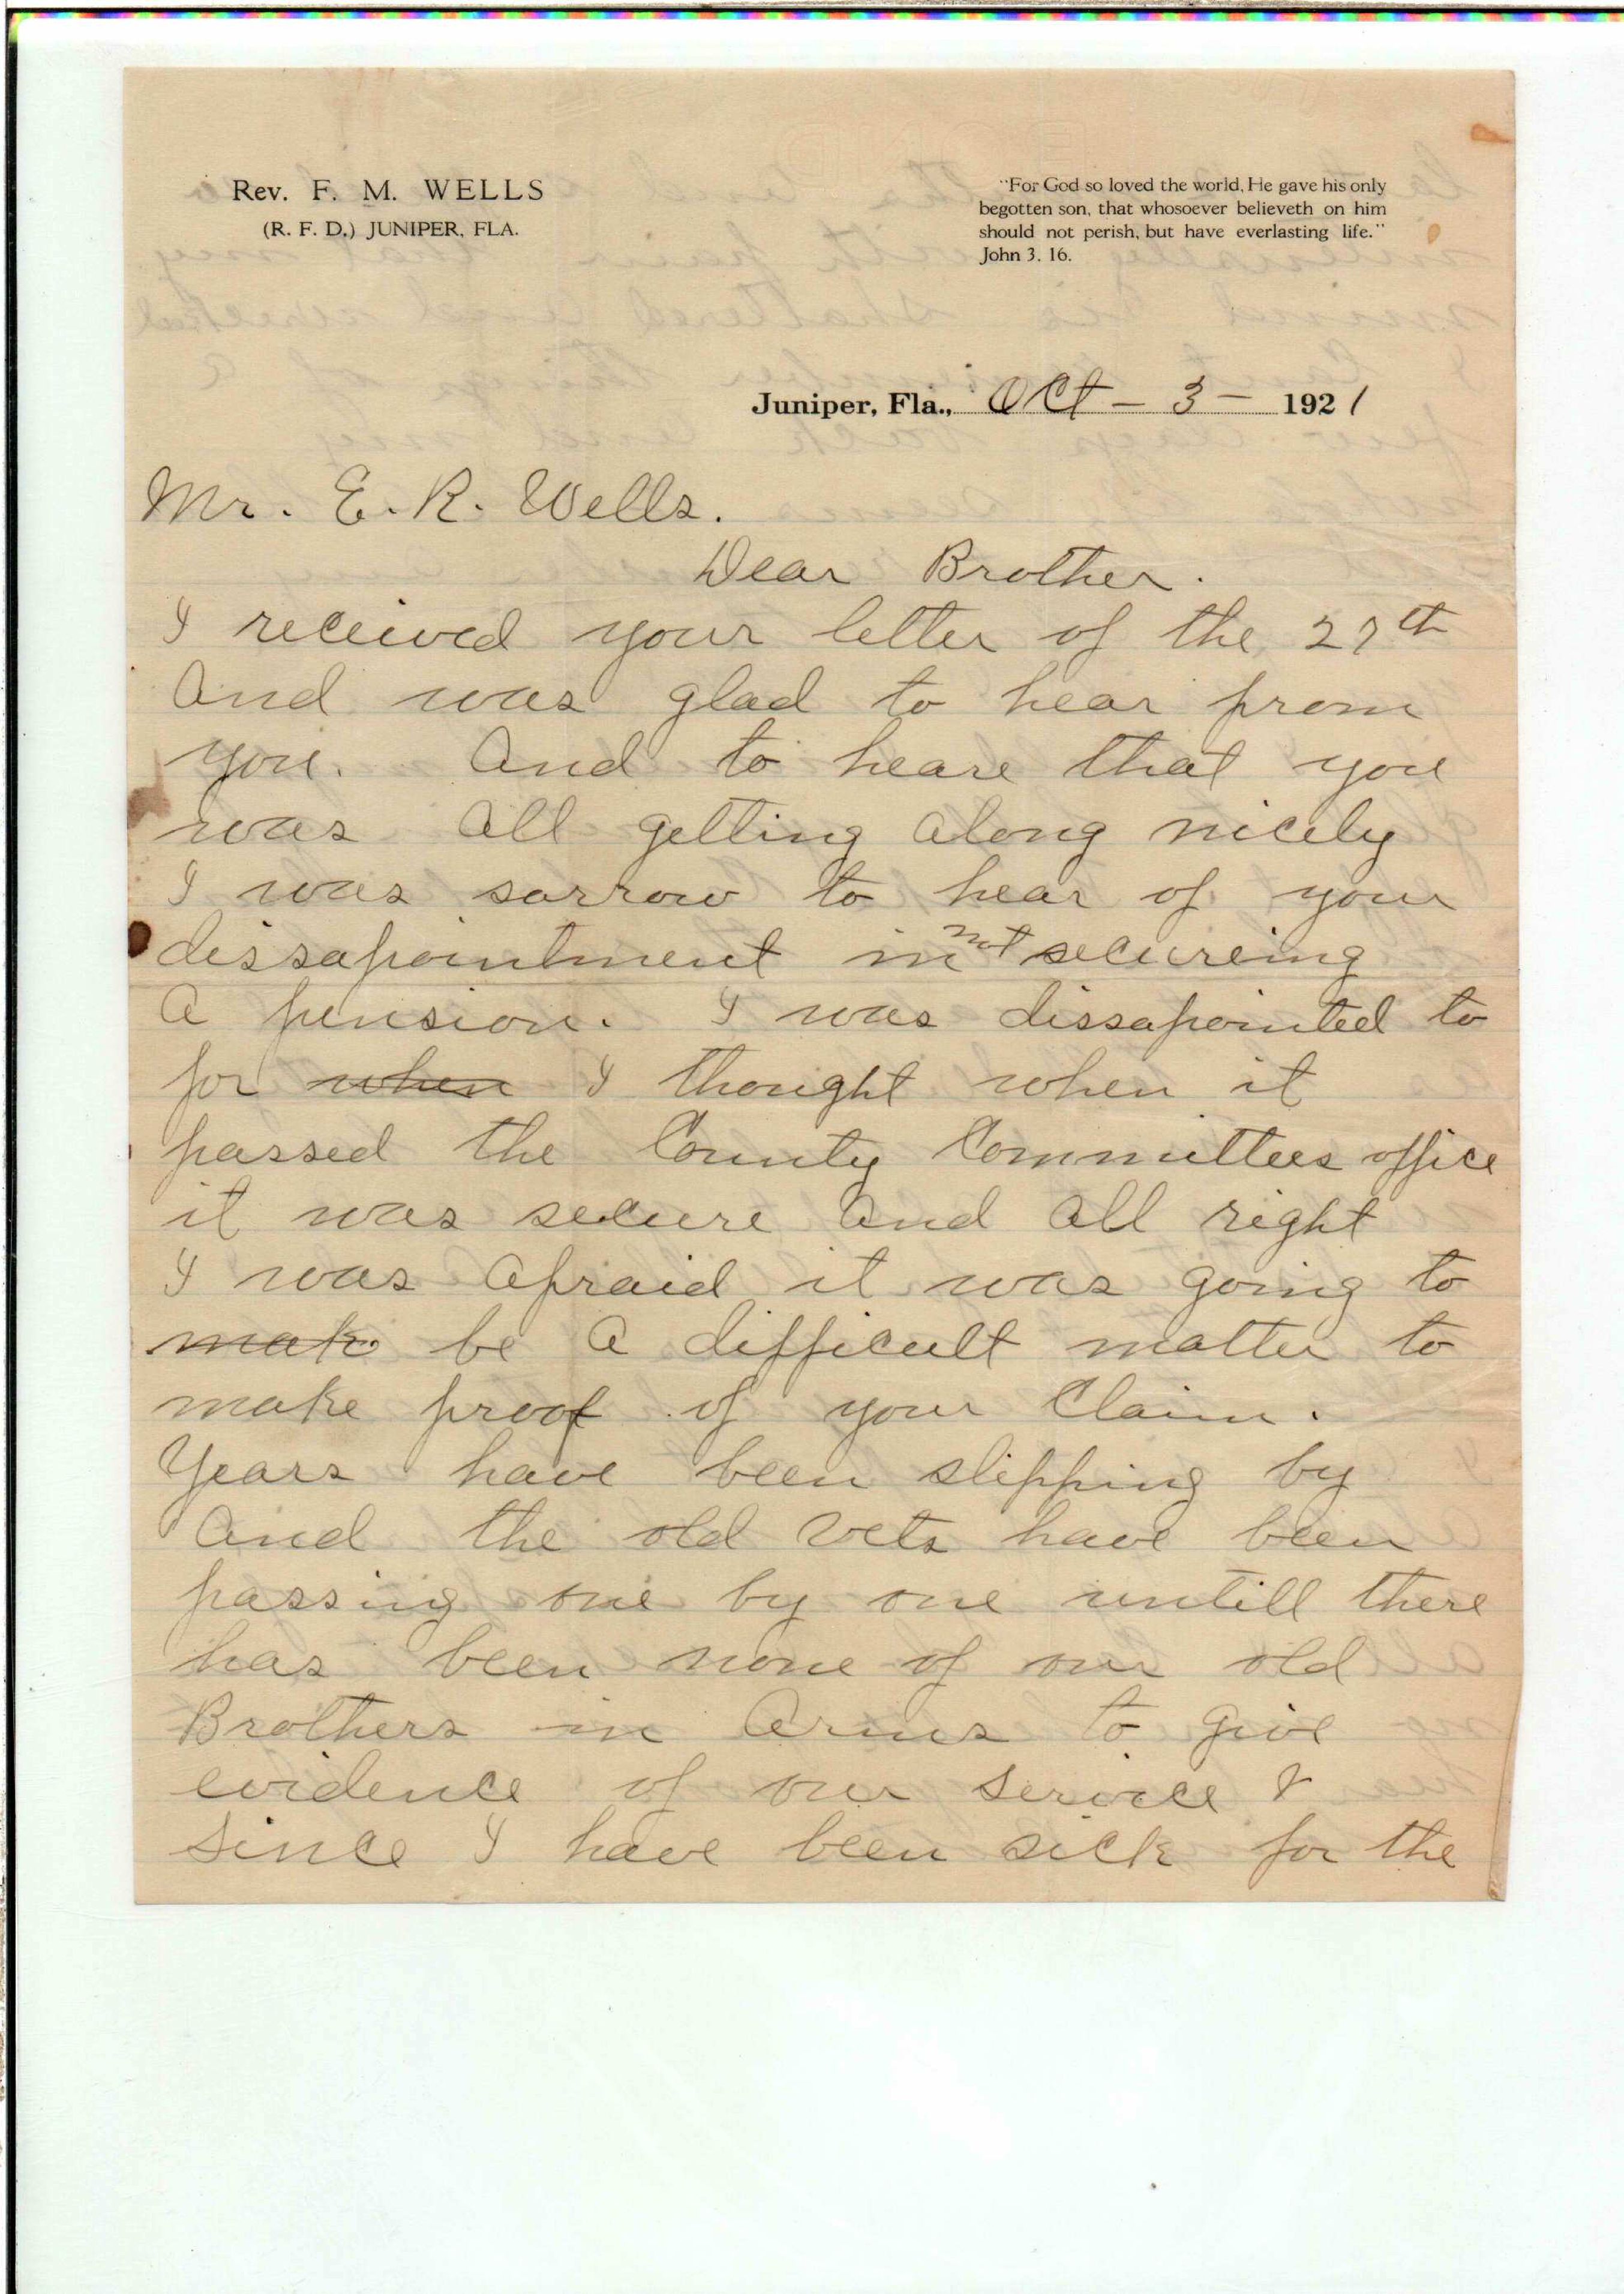 Rev. F. M. WELLS
(R. F. D.) JUNIPER, FLA.
"For God so loved the world, He gave his only
begotten son, that whosoever believeth on him
should not perish, but have everlasting life."
John 3. 16.
Juniper, Fla., Oct - 3 - 1921
Mr. E. R. Wells.
Dear Brother.
I received your letter of the 27th
And was glad to hear from
you. And to heare that you
was All getting along nicely
I was sorrow to hear of your
dissapointment in not secureing
A pension. I was dissapointed to
for when I thought when it
passed the County Committees office
it was secure And All right
I was Afraid it was going to
make be A difficult matter to
make proof of your Claim.
Years have been slipping by
And the old vets have been
passing one by one untill there
has been none of our old
Brothers in Arms to give
evidence of our service &
since I have been sick for the